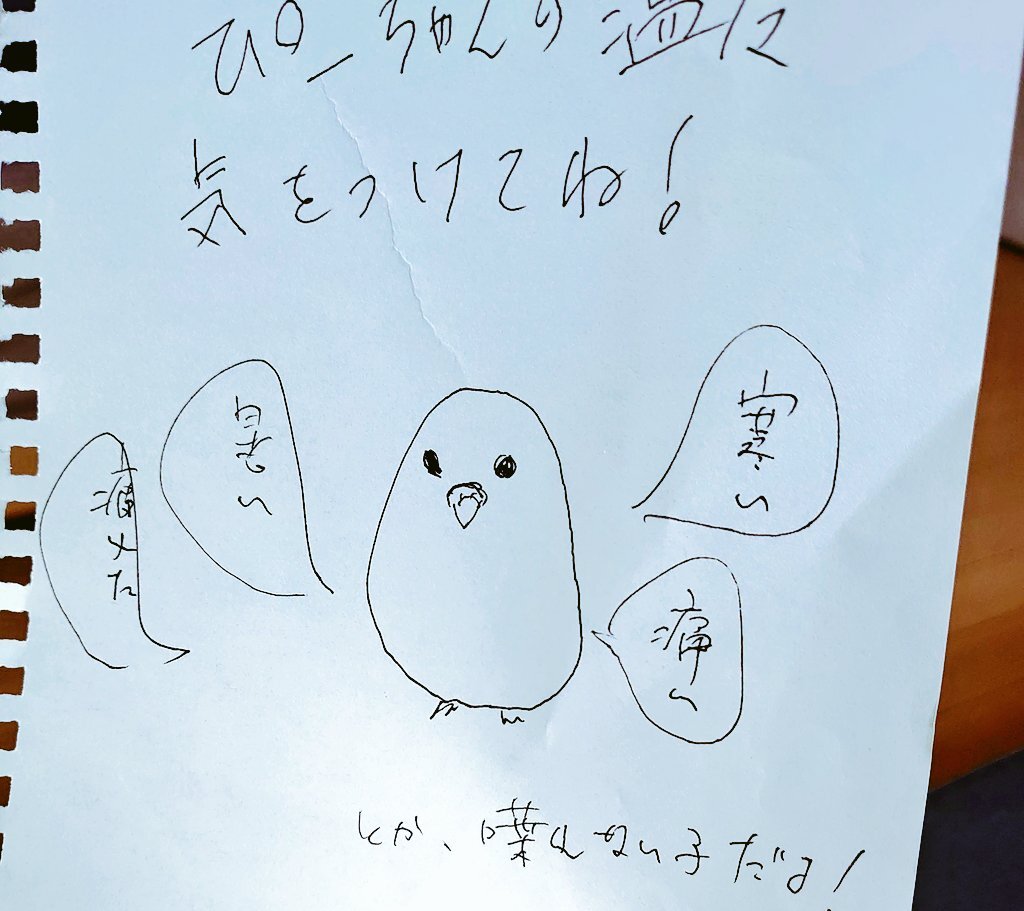 ぴーちゃんの温に
気をつけてね！
寒い
暑い
疲れた
痛い
とか、喋れない子だよ！